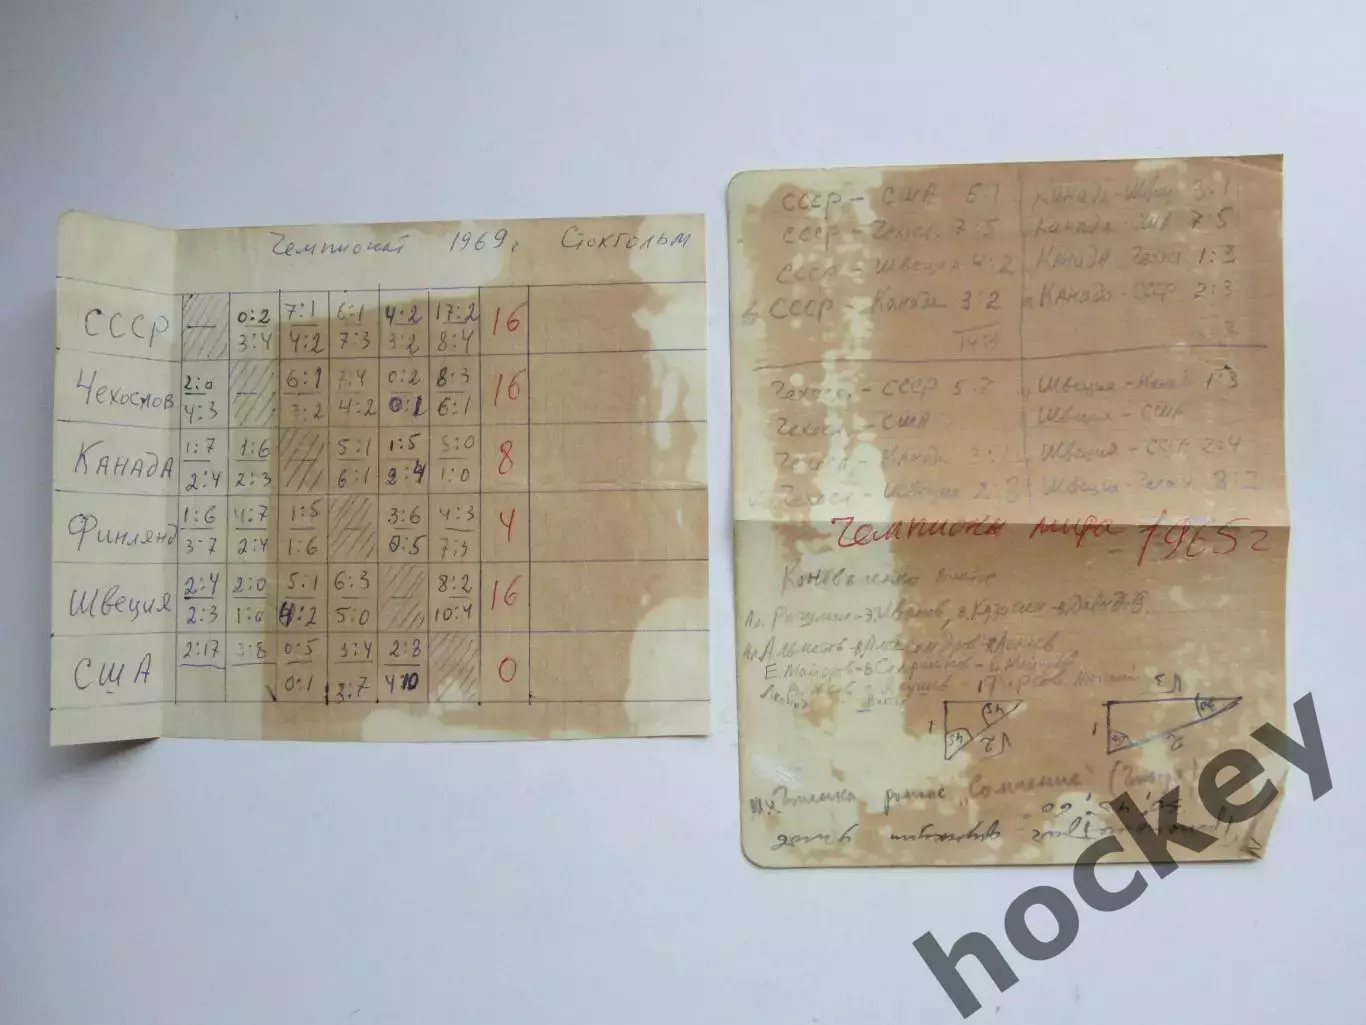 Чемпионат 1969 г Стокгольм
СССР — 0:2 7:1 6:1 4:2 17:2 16
3:4 4:2 7:3 3:2 8:4
Чехослов 2:0 — 6:1 7:4 0:2 8:3 16
4:3 3:2 4:2 0:1 6:1
КАНАДА 1:7 1:6 — 5:1 1:5 5:0 8
2:4 2:3 6:1 2:4 1:0
Финлянд 1:6 4:7 1:5 — 3:6 4:3 4
3:7 2:4 1:6 0:5 7:3
Швеция 2:4 2:0 5:1 6:3 — 8:2 16
2:3 1:0 4:2 5:0 10:4
США 2:17 3:8 0:5 3:4 2:8 0
0:1 3:7 4:10
СССР – США 5:1 Канада-Швец 3:1
СССР – Чехосл. 7:5 Канада США 7:5
СССР – Швеция 4:2 КАНАДА Чехосл 1:3
СССР – Канада 3:2 КАНАДА-СССР 2:3
Чехосл. – СССР 5:7 Швеция-Канада 1:3
Чехосл – США Швеция – США
Чехосл – Канада Швеция – СССР 2:4
Чехосл – Швеция 2:8 Швеция-Чехосл 8:2
Чемпионы мира 1965 г
Коноваленко Виктор
Ал. Рагулин-Э.Иванов, В. Кузькин-В.Давыд
Ал Альметов-В Александров-К Локтев
Е.Майоров-В Старшинов-Б Майоров
Леонид Якушев
1 45 45 √2
√3 1 2
роман "Сомнение"
30; 45; 60